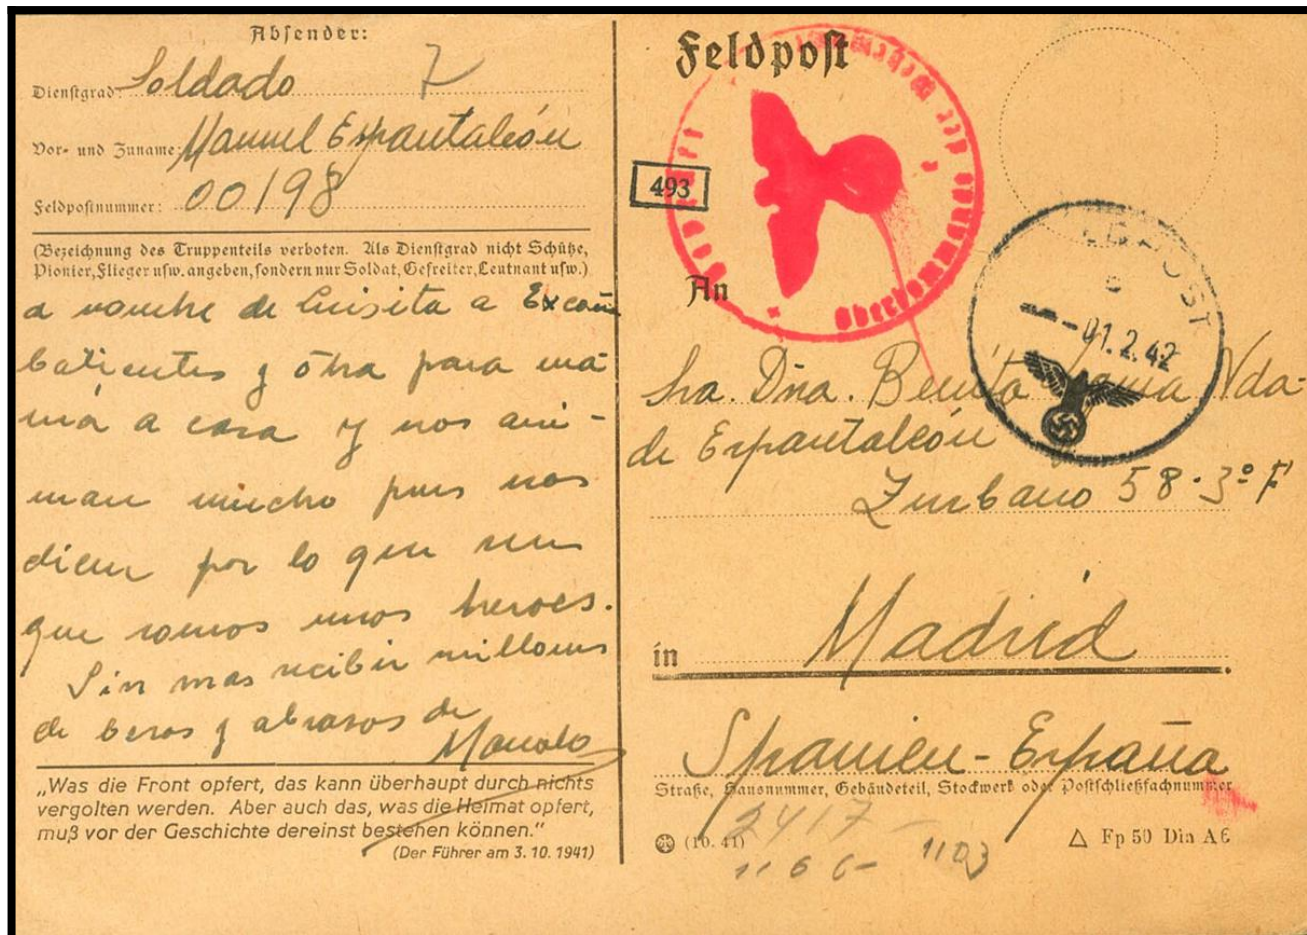 Absender:
Dienstgrad: Soldado 7
Vor- und Zuname: Manuel Espantaleón
Feldpostnummer: 00198
(Bezeichnung des Truppenteils verboten. Als Dienstgrad nicht Schütze,
Pionier, Flieger usw. angeben, sondern nur Soldat, Gefreiter, Leutnant usw.)
a nombre de Luisita a Excom
batientes y otra para ma
má a casa y nos ani-
man mucho pues nos
dicen por lo que
que somos unos heroes.
Sin mas recibir millones
de besos y abrazos de
Manolo
„Was die Front opfert, das kann überhaupt durch nichts
vergolten werden. Aber auch das, was die Heimat opfert,
muß vor der Geschichte dereinst bestehen können.“
(Der Führer am 3. 10. 1941)
Feldpost
493
Oberkommando der
FELDPOST
01.2.42
An
Sra. Dña. Benita Vda
de Espantaleón
Zurbano 58-3º
in Madrid
Spanien-España
Straße, Hausnummer, Gebäudeteil, Stockwerk oder Postschließfachnummer
(10. 41) 2417 - Fp 50 Din A6
1166- 1103